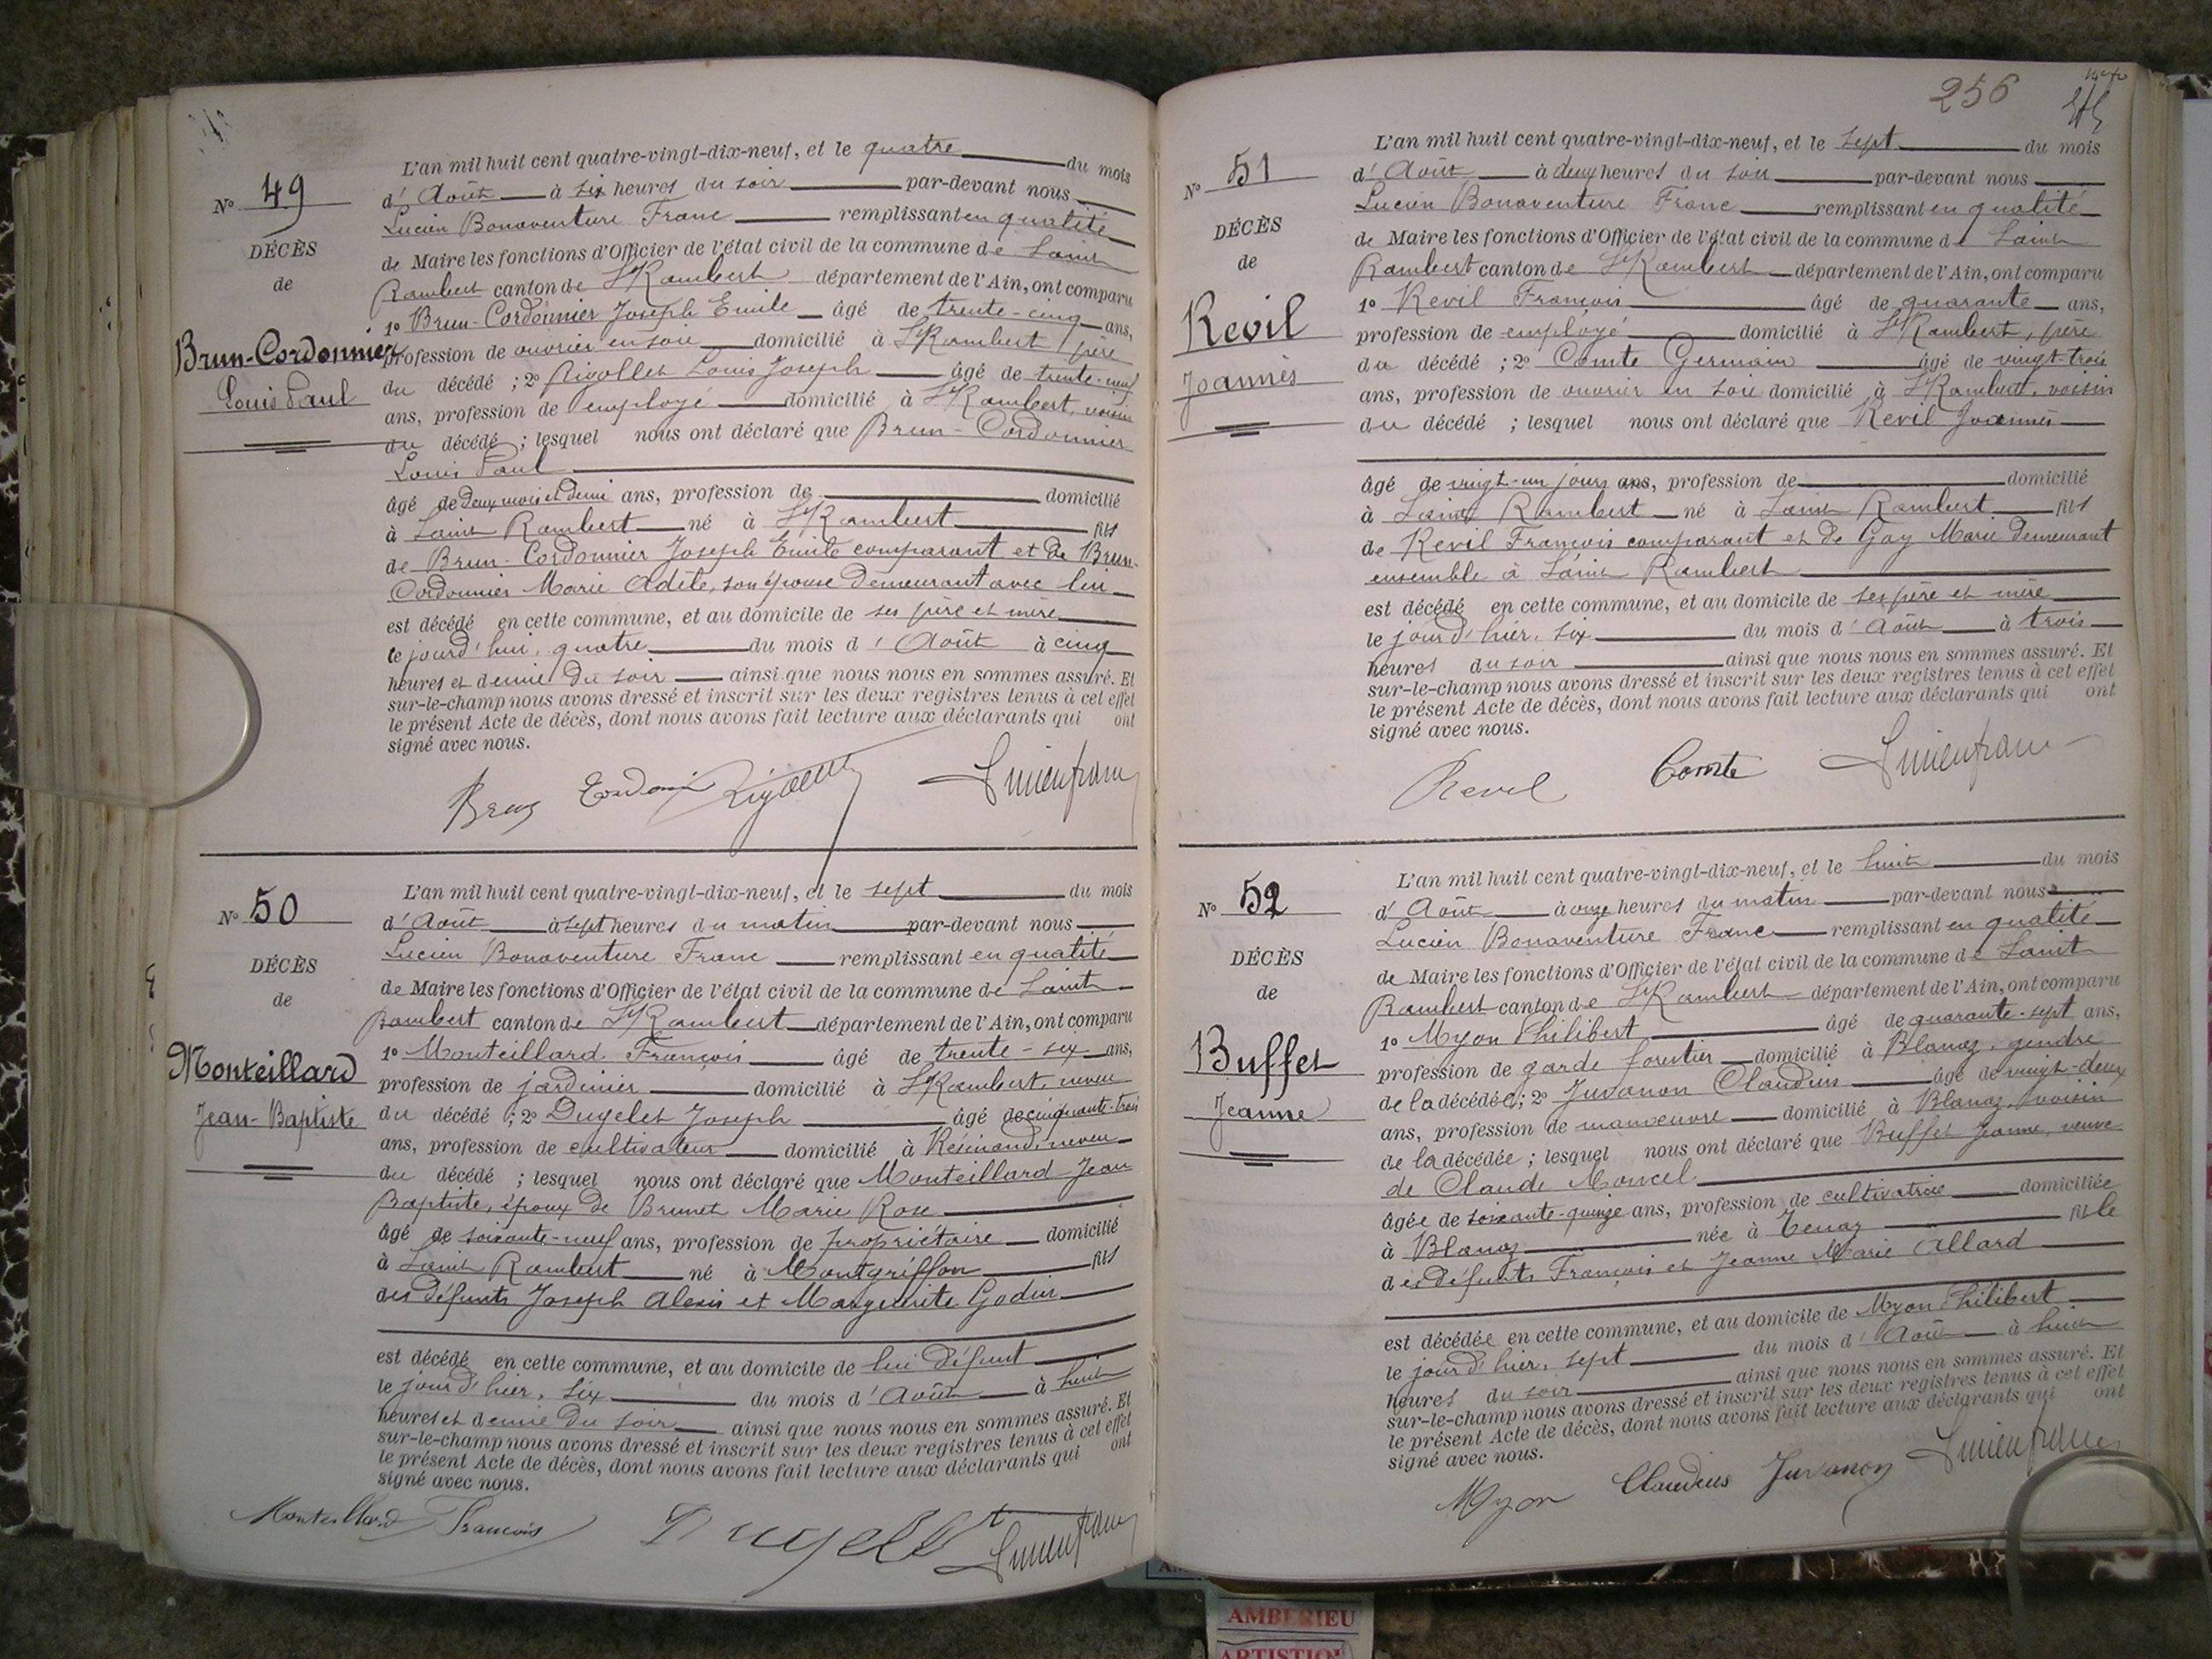 N° 49
DÉCÈS
de
Brun-Cordonnier
Louis Paul
L'an mil huit cent quatre-vingt-dix-neuf, et le quatre du mois
d'Août à six heures du soir par-devant nous
Lucien Bonaventure Franc remplissant en qualité
de Maire les fonctions d'Officier de l'état civil de la commune de Saint
Rambert canton de St Rambert département de l'Ain, ont comparu
1° Brun-Cordonnier Joseph Emile âgé de trente-cinq ans,
profession de ouvrier en soie domicilié à St Rambert, père
du décédé ; 2° Rigollet Louis Joseph âgé de trente-neuf
ans, profession de employé domicilié à St Rambert, voisin
du décédé ; lesquel nous ont déclaré que Brun-Cordonnier
Louis Paul
âgé de deux mois et demi ans, profession de domicilié
à Saint Rambert né à St Rambert fils
de Brun-Cordonnier Joseph Emile comparant et de Brun-
Cordonnier Marie Adèle, son épouse demeurant avec lui
est décédé en cette commune, et au domicile de ses père et mère
le jourd'hui, quatre du mois d'Août à cinq
heures et demie du soir ainsi que nous nous en sommes assuré. Et
sur-le-champ nous avons dressé et inscrit sur les deux registres tenus à cet effet
le présent Acte de décès, dont nous avons fait lecture aux déclarants qui ont
signé avec nous.
Brun Lucien franc
N° 50
DÉCÈS
de
Monteillard
Jean-Baptiste
L'an mil huit cent quatre-vingt-dix-neuf, et le sept du mois
d'Août à sept heures du matin par-devant nous
Lucien Bonaventure Franc remplissant en qualité
de Maire les fonctions d'Officier de l'état civil de la commune de Saint
Rambert canton de St Rambert département de l'Ain, ont comparu
1° Monteillard François âgé de trente-six ans,
profession de jardinier domicilié à St Rambert, neveu
du décédé ; 2° Dugelet Joseph âgé de cinquante-trois
ans, profession de cultivateur domicilié à Résinand, neveu
du décédé ; lesquel nous ont déclaré que Monteillard Jean
Baptiste, époux de Brunet Marie Rose
âgé de soixante-neuf ans, profession de propriétaire domicilié
à Saint Rambert né à Montgriffon fils
des défunts Joseph Alexis et Marguerite Godin
est décédé en cette commune, et au domicile de lui défunt
le jour d'hier, six du mois d'Août à huit
heures et demie du soir ainsi que nous nous en sommes assuré. Et
sur-le-champ nous avons dressé et inscrit sur les deux registres tenus à cet effet
le présent Acte de décès, dont nous avons fait lecture aux déclarants qui ont
signé avec nous.
Monteillard François Dugelet Lucien franc
256
N° 51
DÉCÈS
de
Revil
Joannès
L'an mil huit cent quatre-vingt-dix-neuf, et le sept du mois
d'Août à deux heures du soir par-devant nous
Lucien Bonaventure Franc remplissant en qualité
de Maire les fonctions d'Officier de l'état civil de la commune de Saint
Rambert canton de St Rambert département de l'Ain, ont comparu
1° Revil François âgé de quarante ans,
profession de employé domicilié à St Rambert, père
du décédé ; 2° Comte Germain âgé de vingt-trois
ans, profession de ouvrier en soie domicilié à St Rambert, voisin
du décédé ; lesquel nous ont déclaré que Revil Joannès
âgé de vingt-un jours ans, profession de domicilié
à Saint Rambert né à Saint Rambert fils
de Revil François comparant et de Gay Marie demeurant
ensemble à Saint Rambert
est décédé en cette commune, et au domicile de ses père et mère
le jour d'hier, six du mois d'Août à trois
heures du soir ainsi que nous nous en sommes assuré. Et
sur-le-champ nous avons dressé et inscrit sur les deux registres tenus à cet effet
le présent Acte de décès, dont nous avons fait lecture aux déclarants qui ont
signé avec nous.
Revil Comte Lucien franc
N° 52
DÉCÈS
de
Buffet
Jeanne
L'an mil huit cent quatre-vingt-dix-neuf, et le huit du mois
d'Août à onze heures du matin par-devant nous
Lucien Bonaventure Franc remplissant en qualité
de Maire les fonctions d'Officier de l'état civil de la commune de Saint
Rambert canton de St Rambert département de l'Ain, ont comparu
1° Myon Philibert âgé de quarante-sept ans,
profession de garde forestier domicilié à Blanaz, gendre
de la décédée ; 2° Juvanon Claudius âgé de vingt-deux
ans, profession de manoeuvre domicilié à Blanaz, voisin
de la décédée ; lesquel nous ont déclaré que Buffet Jeanne, veuve
de Claude Moncel
âgée de soixante-quinze ans, profession de cultivatrice domiciliée
à Blanaz née à Tenay fille
des défunts François et Jeanne Marie Allard
est décédée en cette commune, et au domicile de Myon Philibert
le jour d'hier, sept du mois d'Août à huit
heures du soir ainsi que nous nous en sommes assuré. Et
sur-le-champ nous avons dressé et inscrit sur les deux registres tenus à cet effet
le présent Acte de décès, dont nous avons fait lecture aux déclarants qui ont
signé avec nous.
Myon Claudius Juvanon Lucien franc
AMBERIEU